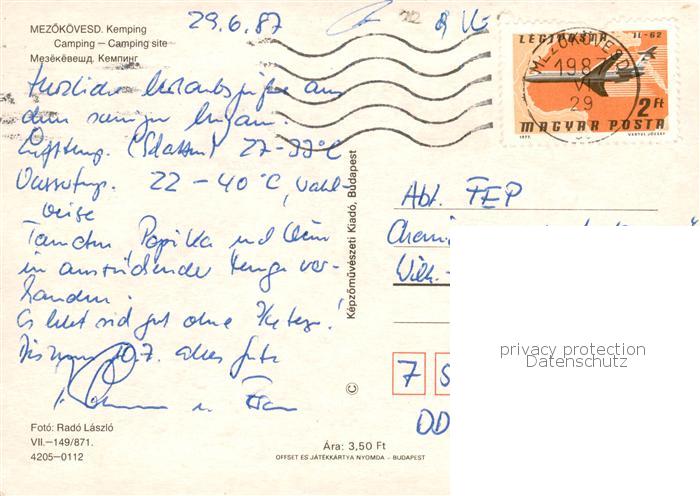 29.6.87
MEZŐKÖVESD. Kemping
Camping – Camping site
Мезёкёвешд. Кемпинг
Herzliche Urlaubsgrüße aus
dem sonnigen Ungarn.
Lufttemp. (Schatten) 27–33°C
Wassertemp. 22–40°C, wahl-
weise
Tomaten Paprika und Wein
in ausreichender Menge vor-
handen.
Es lebt sich gut ohne
Bis zum 10.7. alles Gute
u. Frau
Fotó: Radó László
VII.—149/871.
4205-0112
Képzőművészeti Kiadó, Budapest
©
Ára: 3,50 Ft
OFFSET ÉS JÁTÉKKÁRTYA NYOMDA – BUDAPEST
LÉGIPOSTA IL-62
MEZŐKÖVESD
1987
VI
29
2 Ft
MAGYAR POSTA
1977. VERTEL JÓZSEF
Abt. FEP
Wilh.-
7
DD
privacy protection
Datenschutz